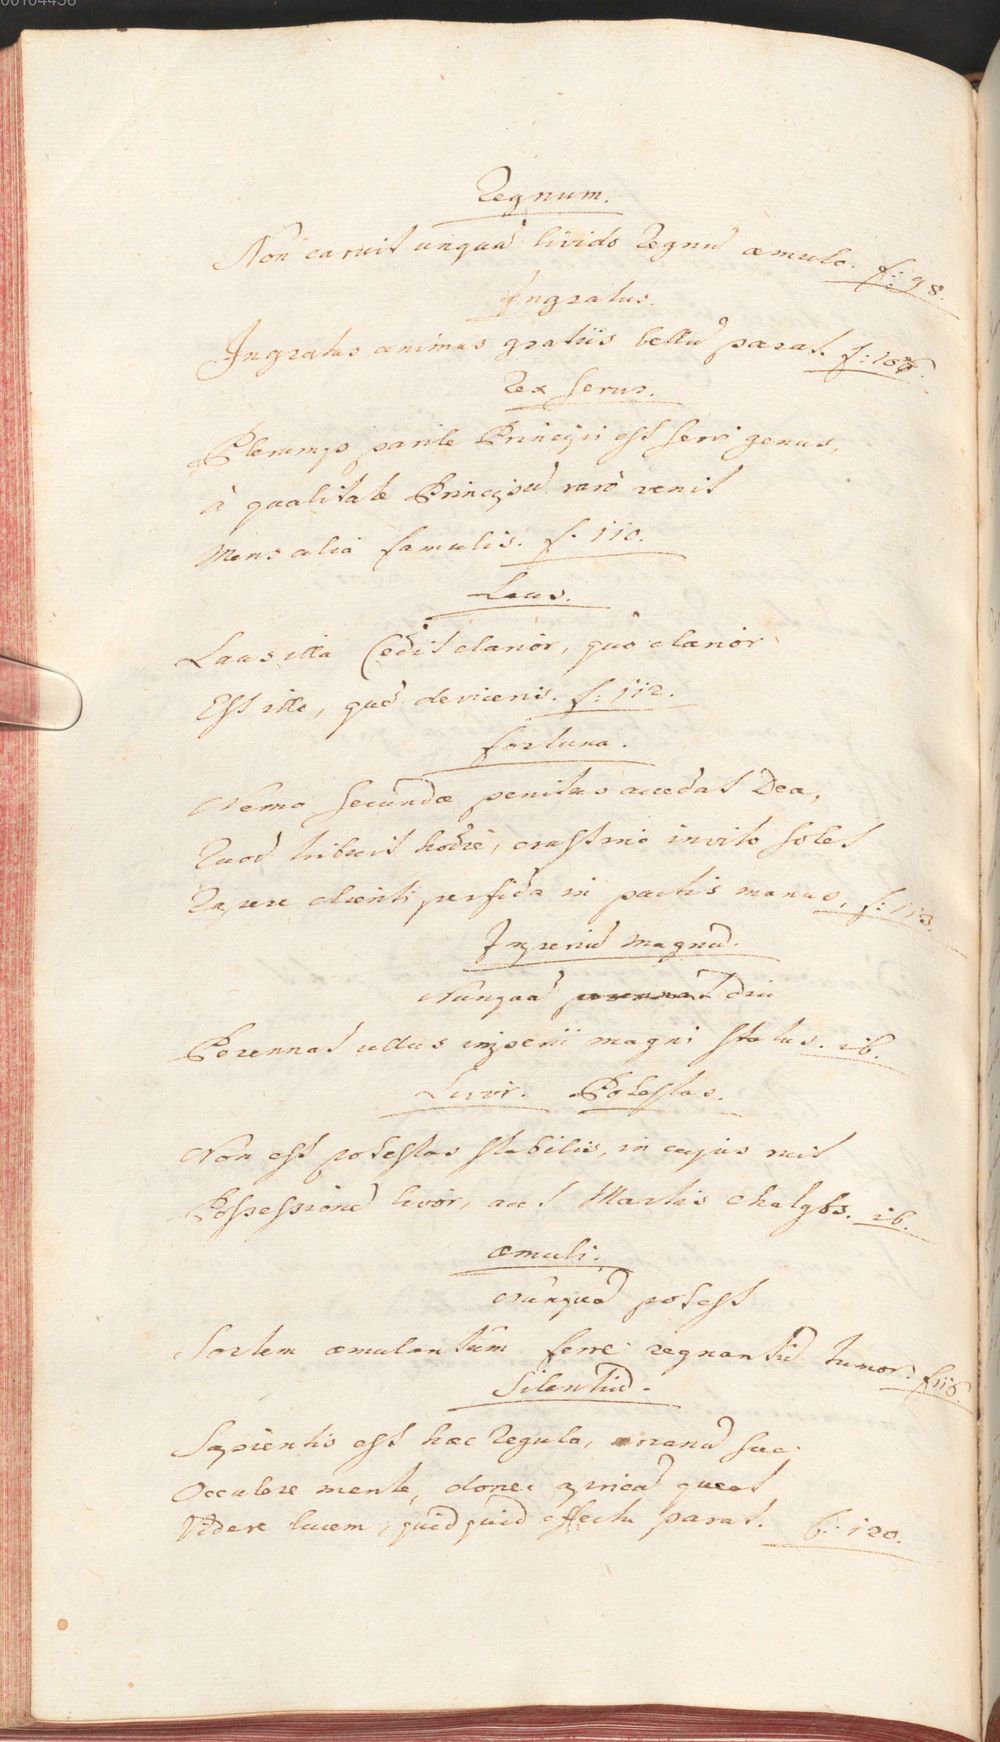 00104436
Regnum.
Non caruit unquā livido Regnū æmulo. f: 98.
Ingratus.
Ingratus animus gratiis bellū parat. f: 106.
Rex servus.
Plerumq̨ parile Principi est servi genus,
à qualitate Principū rarò venit
Mens alia famulis. f. 110.
Laus.
Laus illa cedit clarior, quò clarior
Est ille, quē devicenis. f: 112.
fortuna.
Nemo secundæ penitus accedat Deæ,
Quod tribuit hodie, crastino invito solet
Rapere clienti perfida in pactis manus. f: 113.
Imperiū magnū.
Nunquā diu
Perennat ullus imperii magni status. ib.
Livor. Potestas.
Non est potestas stabilis, in cujus ruit
Possessionē livor, aut Martis chalybs. ib.
æmuli.
Nunquā potest
Sortem æmulantum ferre regnantiū tumor. f: 116.
Silentiū.
Sapientis est hæc Regula, arcanū suæ
Occulere mente, donec apricā queat
Videre lucem, quidquid effectu parat. f: 120.